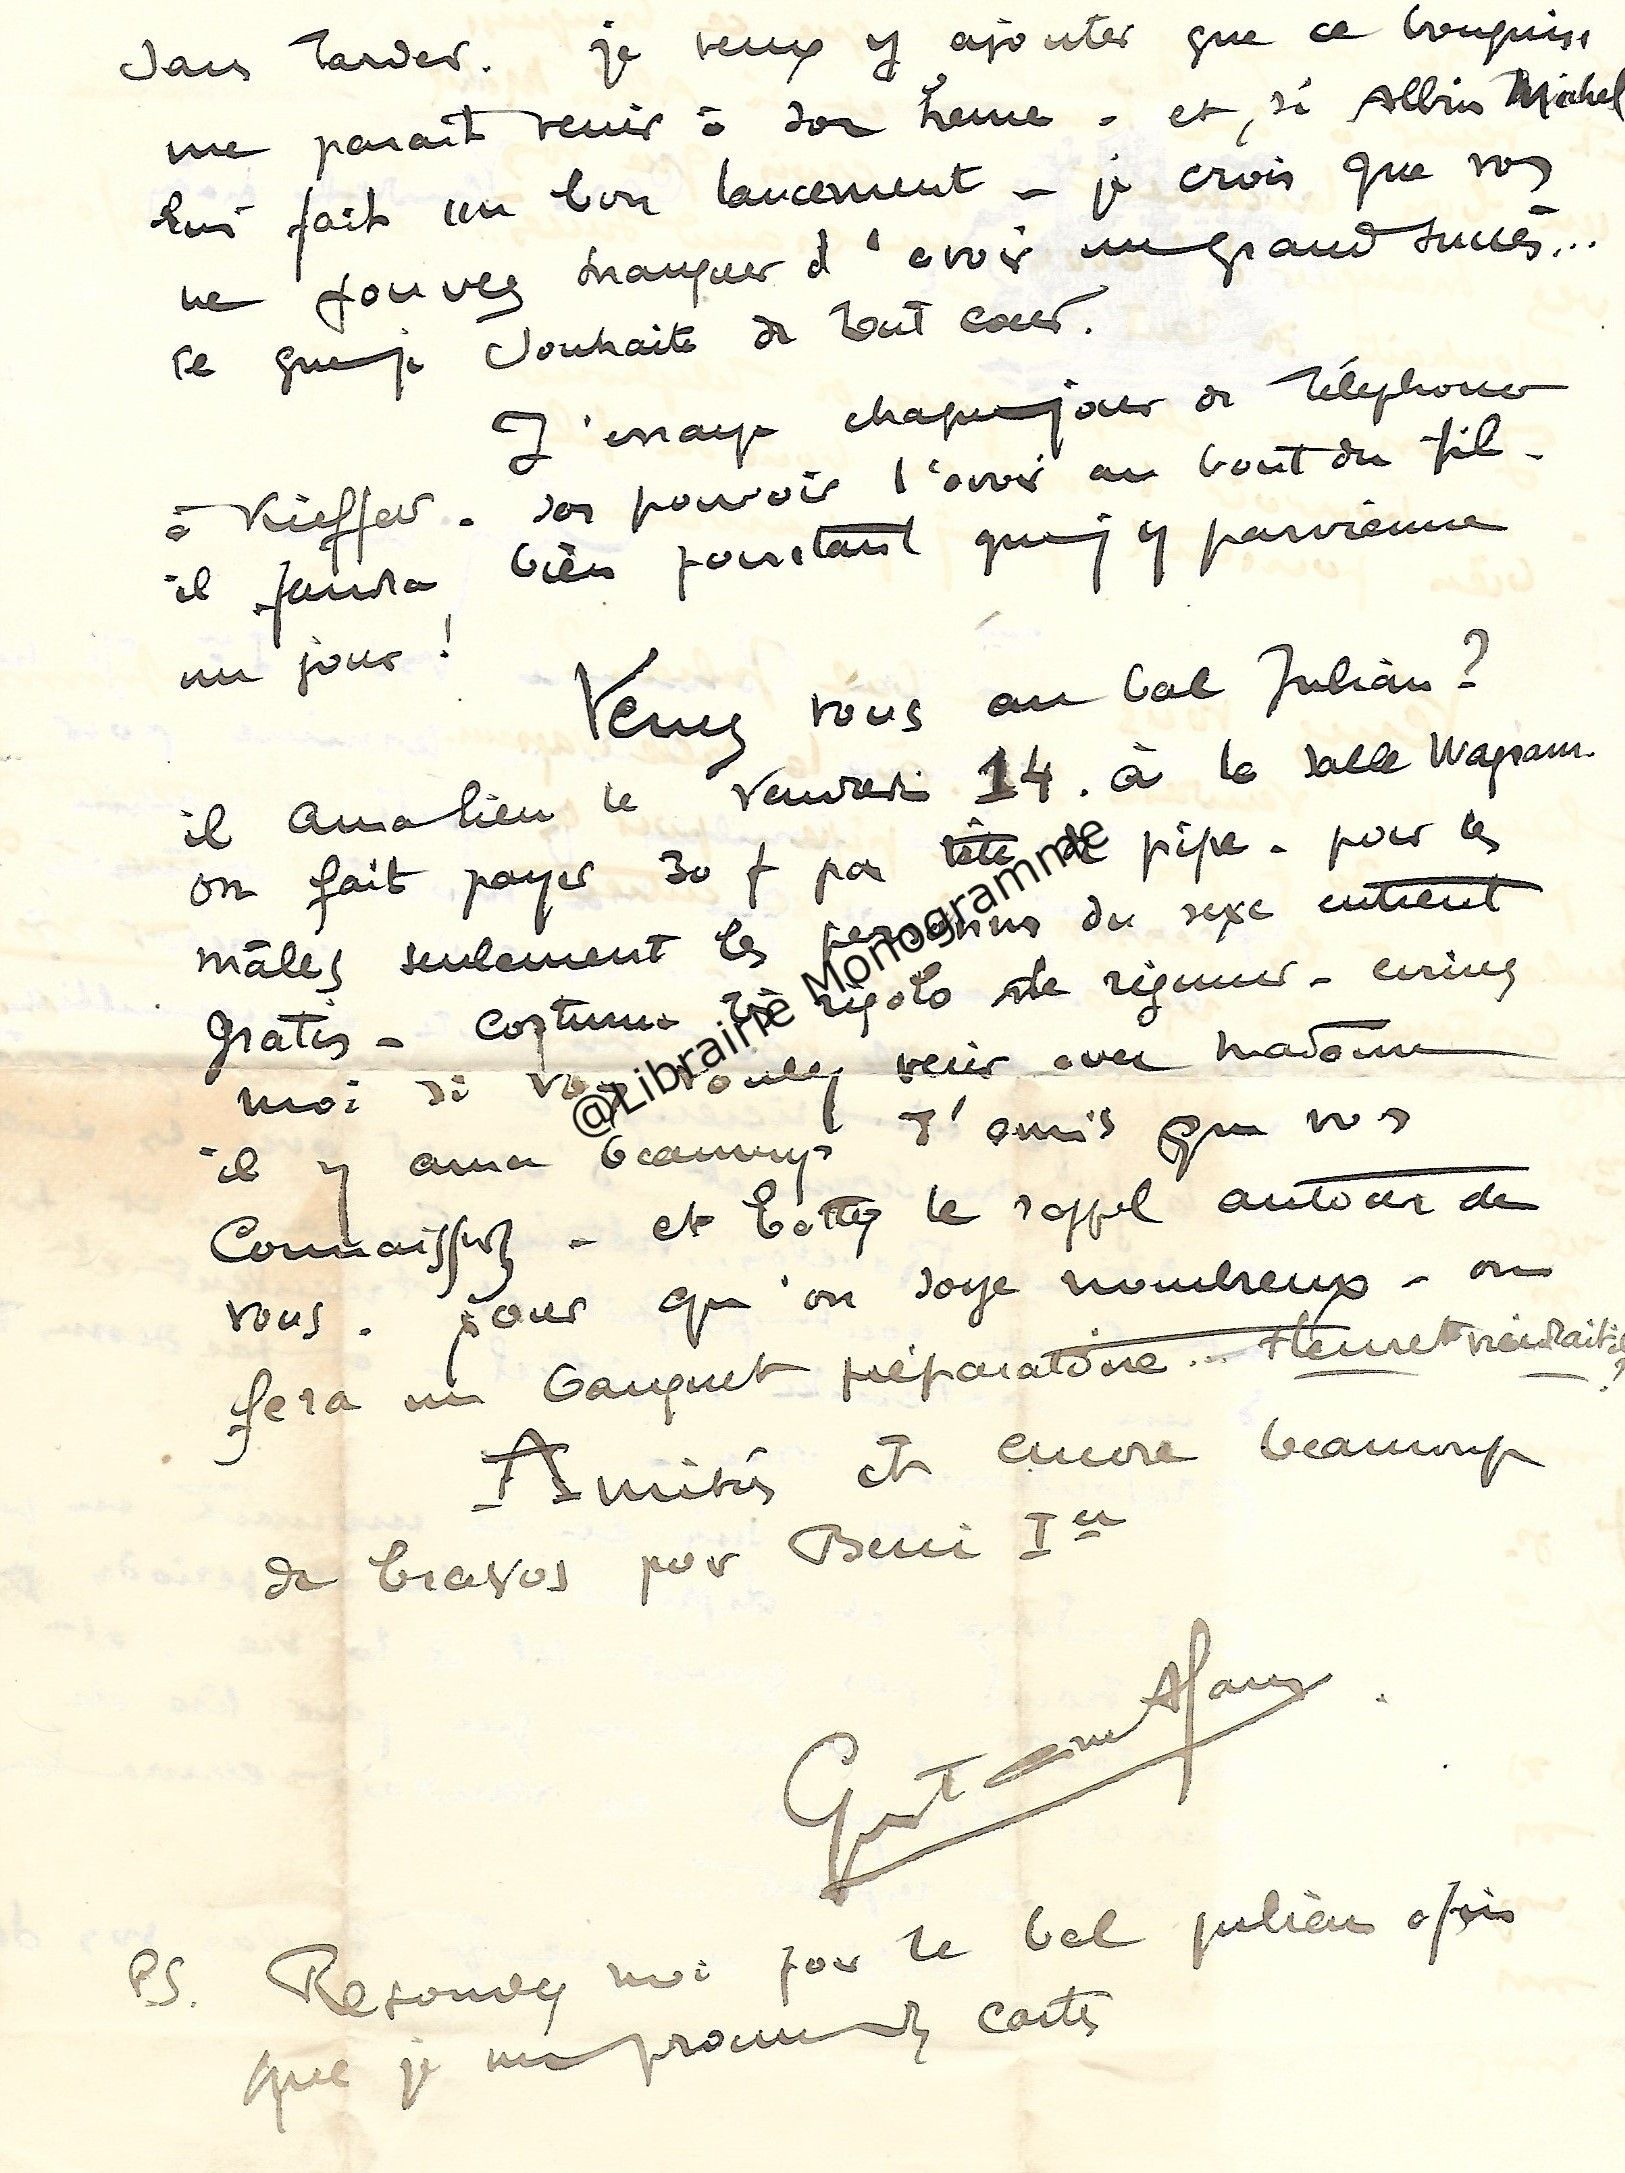 sans tarder. je veux y ajouter que ce bouquin
me parait venir à son heure - et, si Albin Michel
lui fait un bon lancement - je crois que vous
ne pouvez manquer d'avoir un grand succès...
ce que je souhaite de tout cœur.
J'essaye chaque jour de téléphoner
à Kieffer - sans pouvoir l'avoir au bout du fil -
il faudra bien pourtant que j'y parvienne
un jour !
Venez vous au bal Julian ?
il aura lieu le Vendredi 14. à la salle Wagram.
on fait payer 30 f par tête de pipe - pour les
mâles seulement les personnes du sexe entrent
gratis - costume très rigolo de rigueur - ecrivez
moi si vous voulez venir avec madame
il y aura beaucoup d'amis que vous
connaissez - et battez le rappel autour de
vous. pour qu'on soye nombreux - on
fera un banquet préparatoire... Fleuret viendrait-il ?
Amitiés et encore beaucoup
de bravos pour Beni Ier
Gust
P.S. Repondez moi pour le bal julian afin
que je me procure des cartes
@Librairie Monogramme